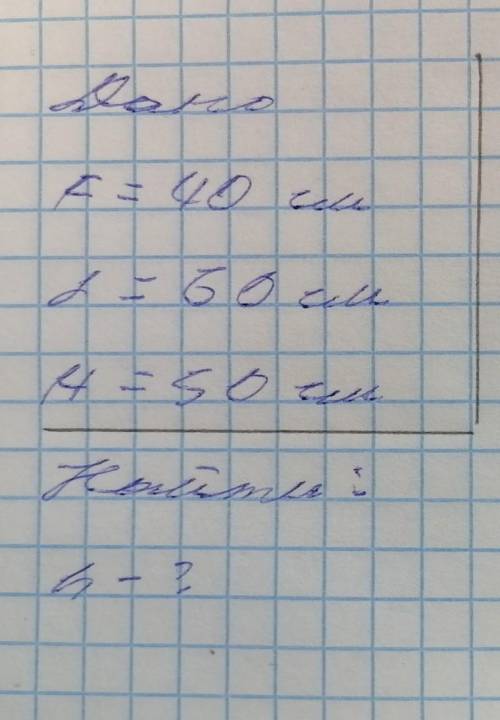 Дано
F = 40 см
d = 60 см
H = 50 см
Найти:
h - ?